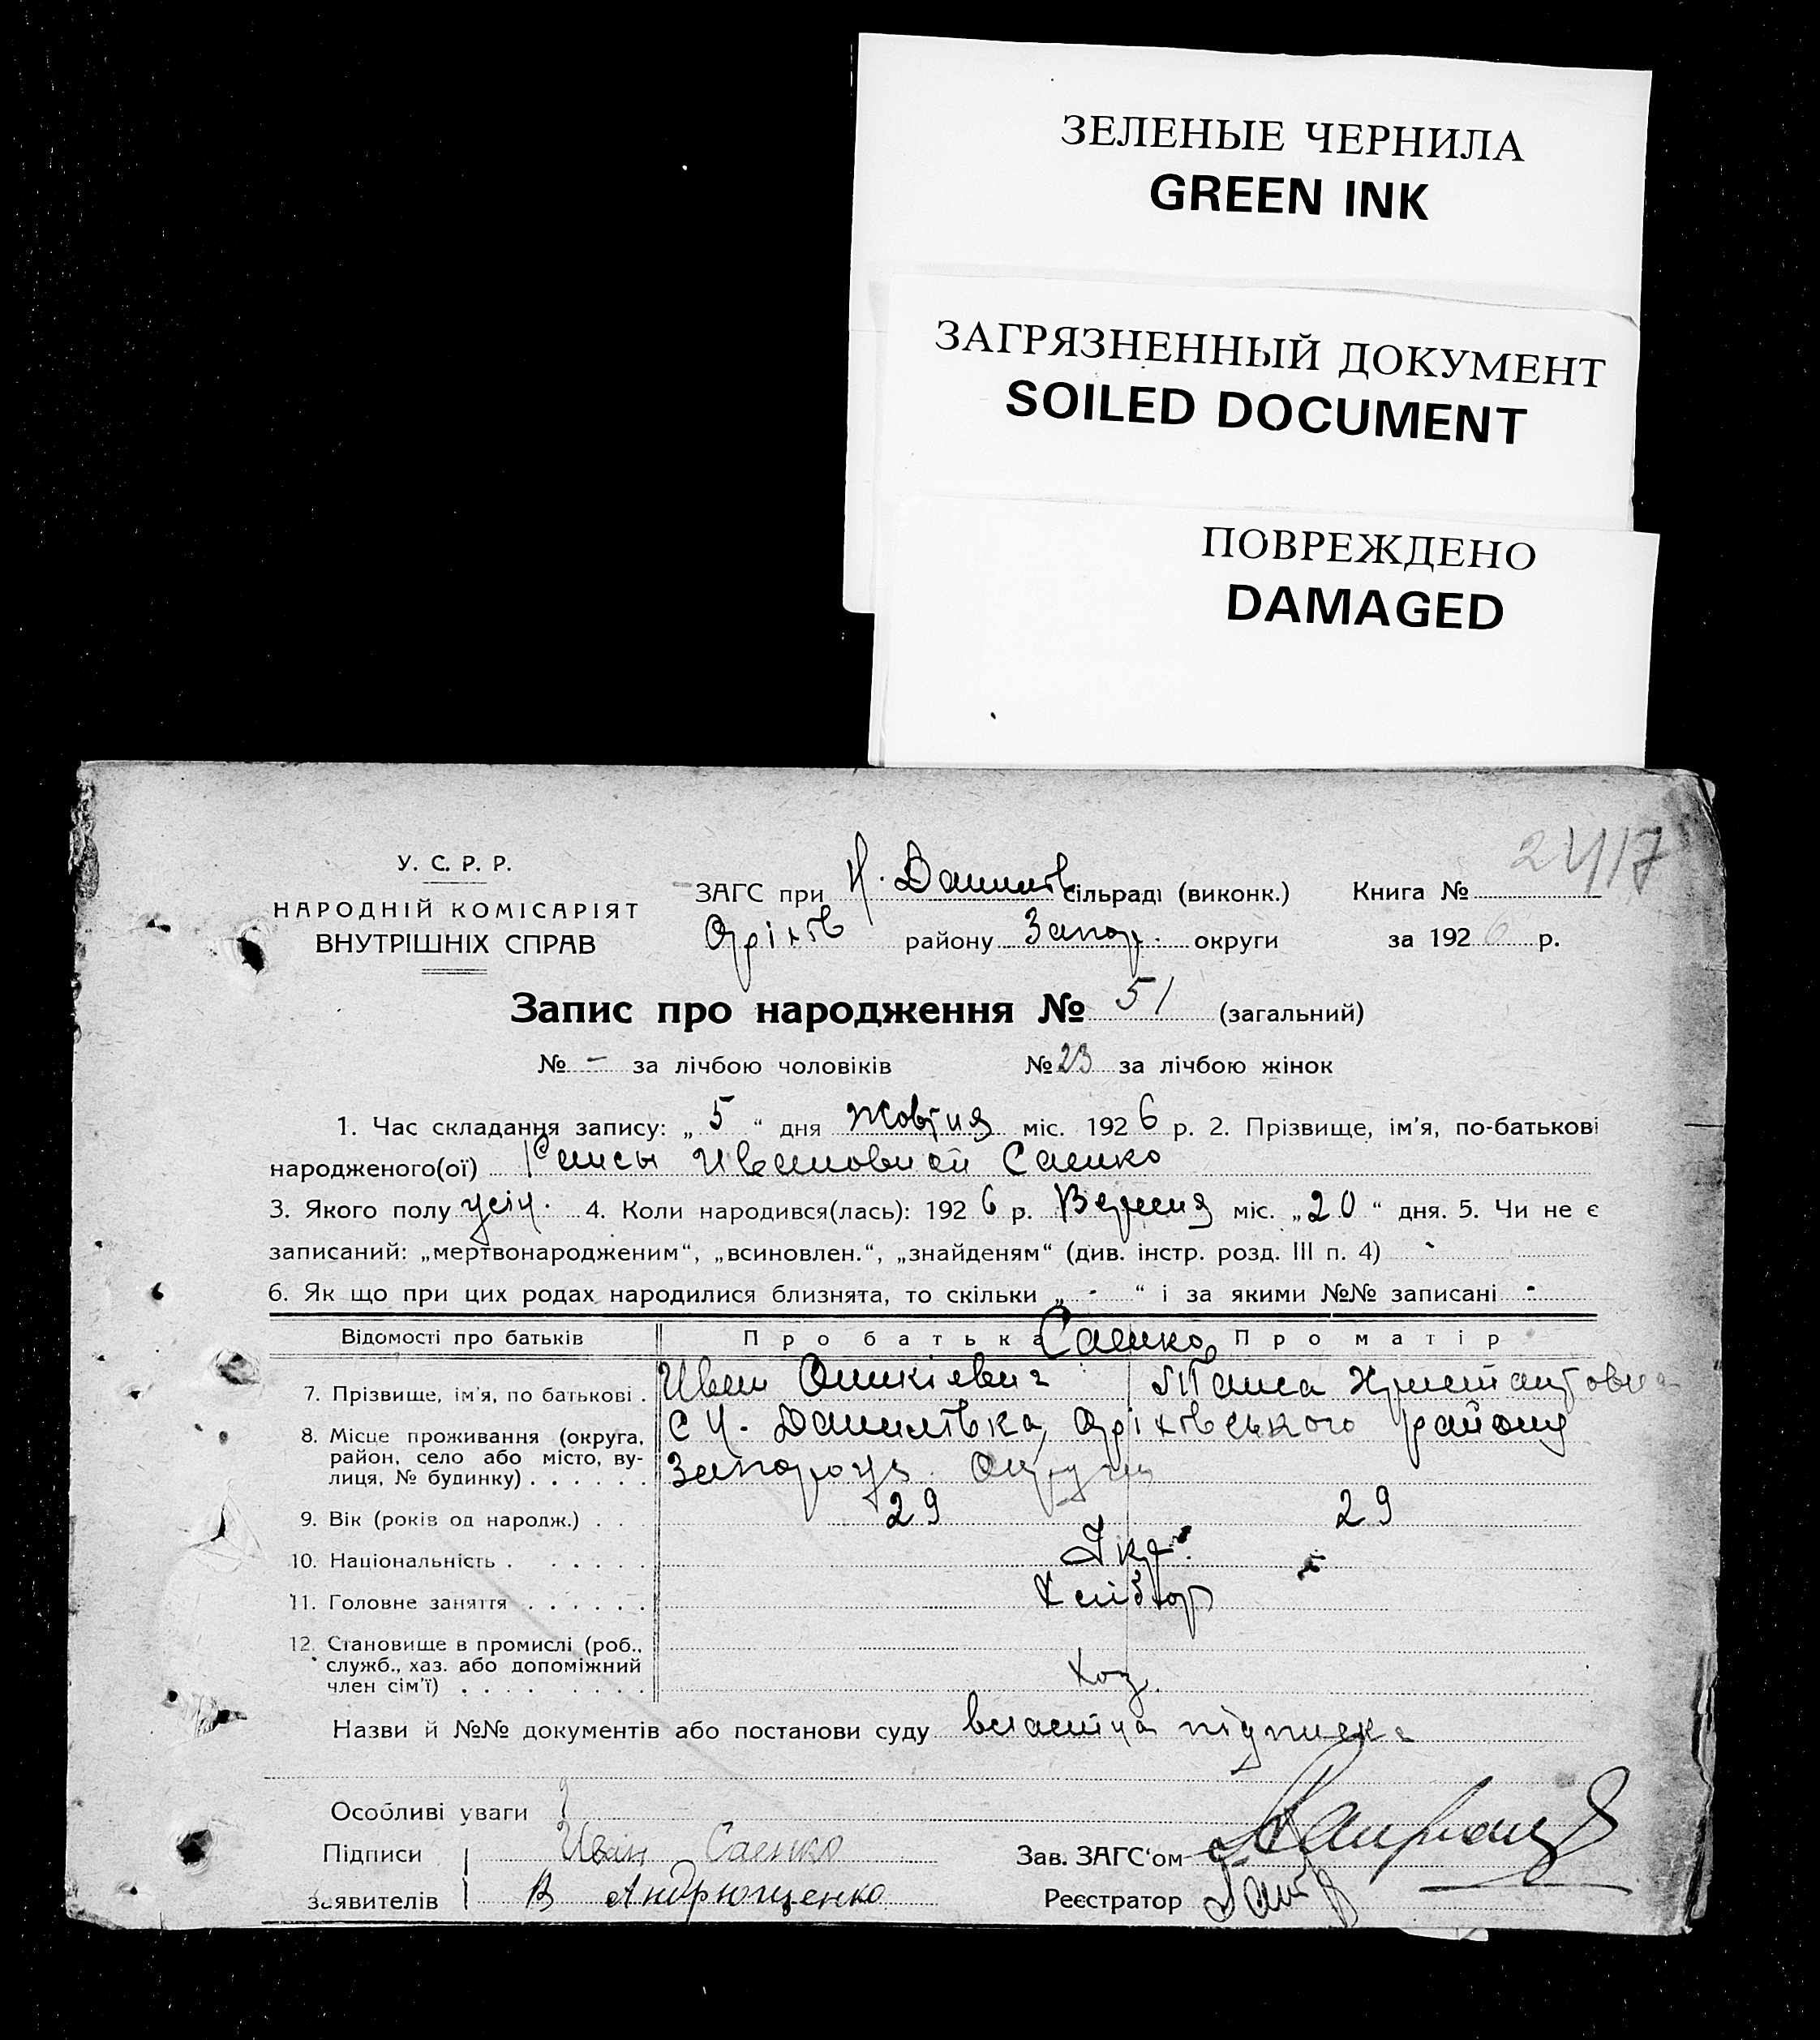 ЗЕЛЕНЫЕ ЧЕРНИЛА
GREEN INK
ЗАГРЯЗНЕННЫЙ ДОКУМЕНТ
SOILED DOCUMENT
ПОВРЕЖДЕНО
DAMAGED
У. С. Р. Р.
НАРОДНІЙ КОМІСАРІЯТ
ВНУТРІШНІХ СПРАВ
ЗАГС при Н. Данилів сільраді (виконк.) Книга №
Оріхів району Запор. округи за 1926 р.
Запис про народження № 51 (загальний)
№ - за лічбою чоловіків № 23 за лічбою жінок
1. Час складання запису: „ 5 “ дня Жовтня міс. 1926 р. 2. Прізвище, ім'я, по-батькові
народженого(ої) Ивановной Саенко
3. Якого полу 4. Коли народився(лась): 1926 р. Вересня міс. „20“ дня. 5. Чи не є
записаний: „мертвонародженим“, „всиновлен.“, „знайденям“ (див. інстр. розд. III п. 4) -
6. Як що при цих родах народилися близнята, то скільки „ - “ і за якими №№ записані -
Відомості про батьків Про батька Саенко Про матір
7. Прізвище, ім'я, по батькові . Иван
8. Місце проживання (округа, С Н. Данилівка, Оріхівського району
район, село або місто, ву-
лиця, № будинку) . . . . . . Округи
9. Вік (років од народж.) . . 29 29
10. Національність . . . . . . Укр.
11. Головне заняття . . . . . . Хлібор
12. Становище в промислі (роб.,
служб., хаз. або допоміжний
член сім'ї) . . . . . . . . . Хоз.
Назви й №№ документів або постанови суду власна підписка
Особливі уваги
Підписи Иван Саенко Зав. ЗАГС'ом
заявителів В Андрющенко Реєстратор